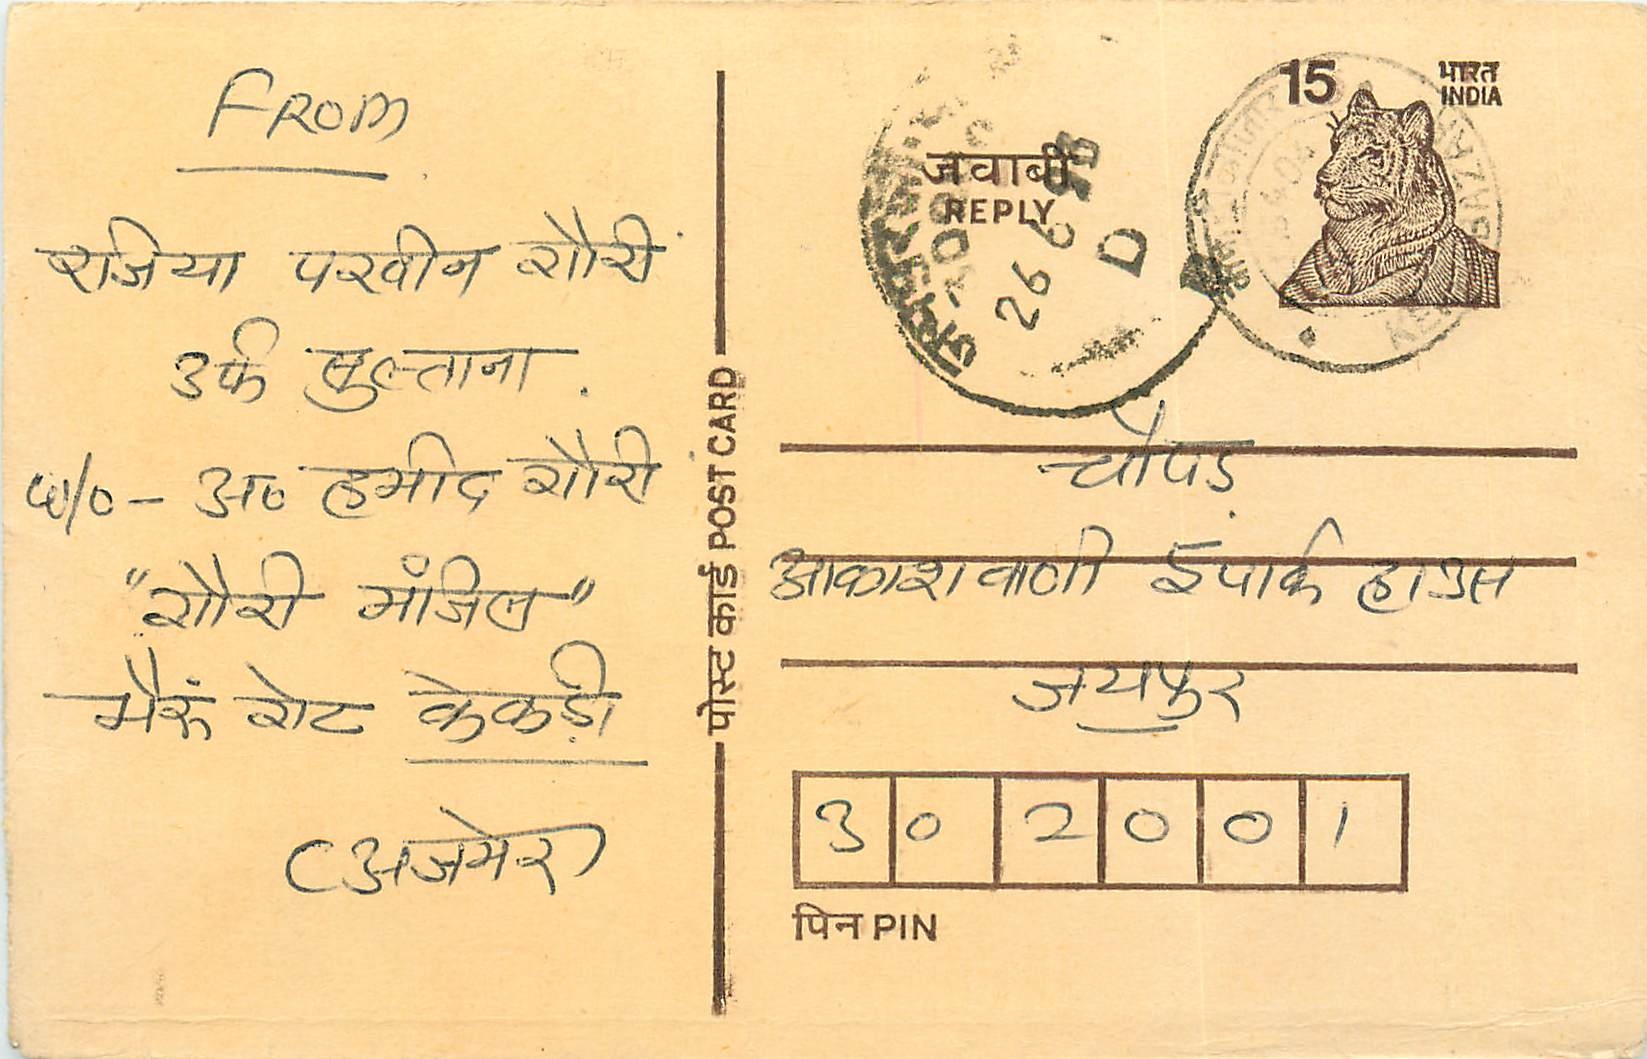 FROM
रजिया परवीन शौरी
उर्फ सुल्ताना.
w/o - अ० हमीद शौरी
"शौरी मंजिल"
भैरूं गेट केकड़ी
(अजमेर)
पोस्ट कार्ड POST CARD
जवाबी
REPLY
26 6
D
15
भारत
INDIA
चौपड़
आकाशवाणी ईपार्क हाउस
जयपुर
302001
पिन PIN